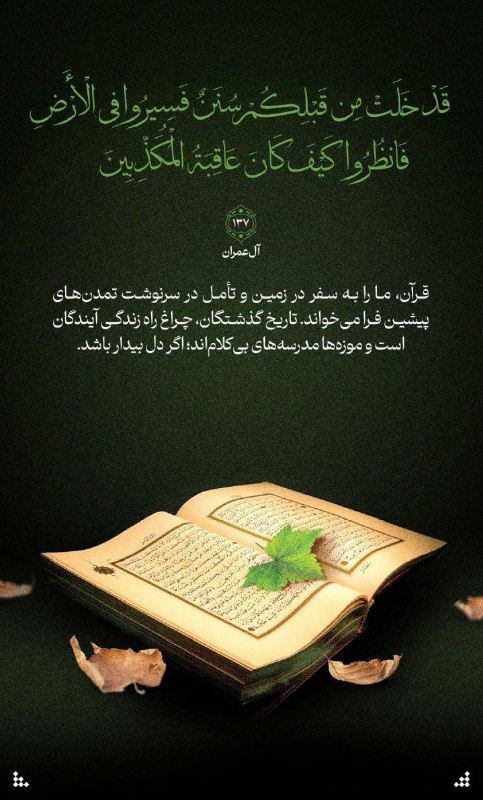 قَدْ خَلَتْ مِن قَبْلِكُمْ سُنَنٌ فَسِيرُوا فِى الْأَرْضِ
فَانظُرُوا كَيْفَ كَانَ عَاقِبَةُ الْمُكَذِّبِينَ
۱۳۷
آل‌عمران
قرآن، ما را به سفر در زمین و تأمل در سرنوشت تمدن‌های
پیشین فرا می‌خواند. تاریخ گذشتگان، چراغ راه زندگی آیندگان
است و موزه‌ها مدرسه‌های بی‌کلام‌اند؛ اگر دل بیدار باشد.